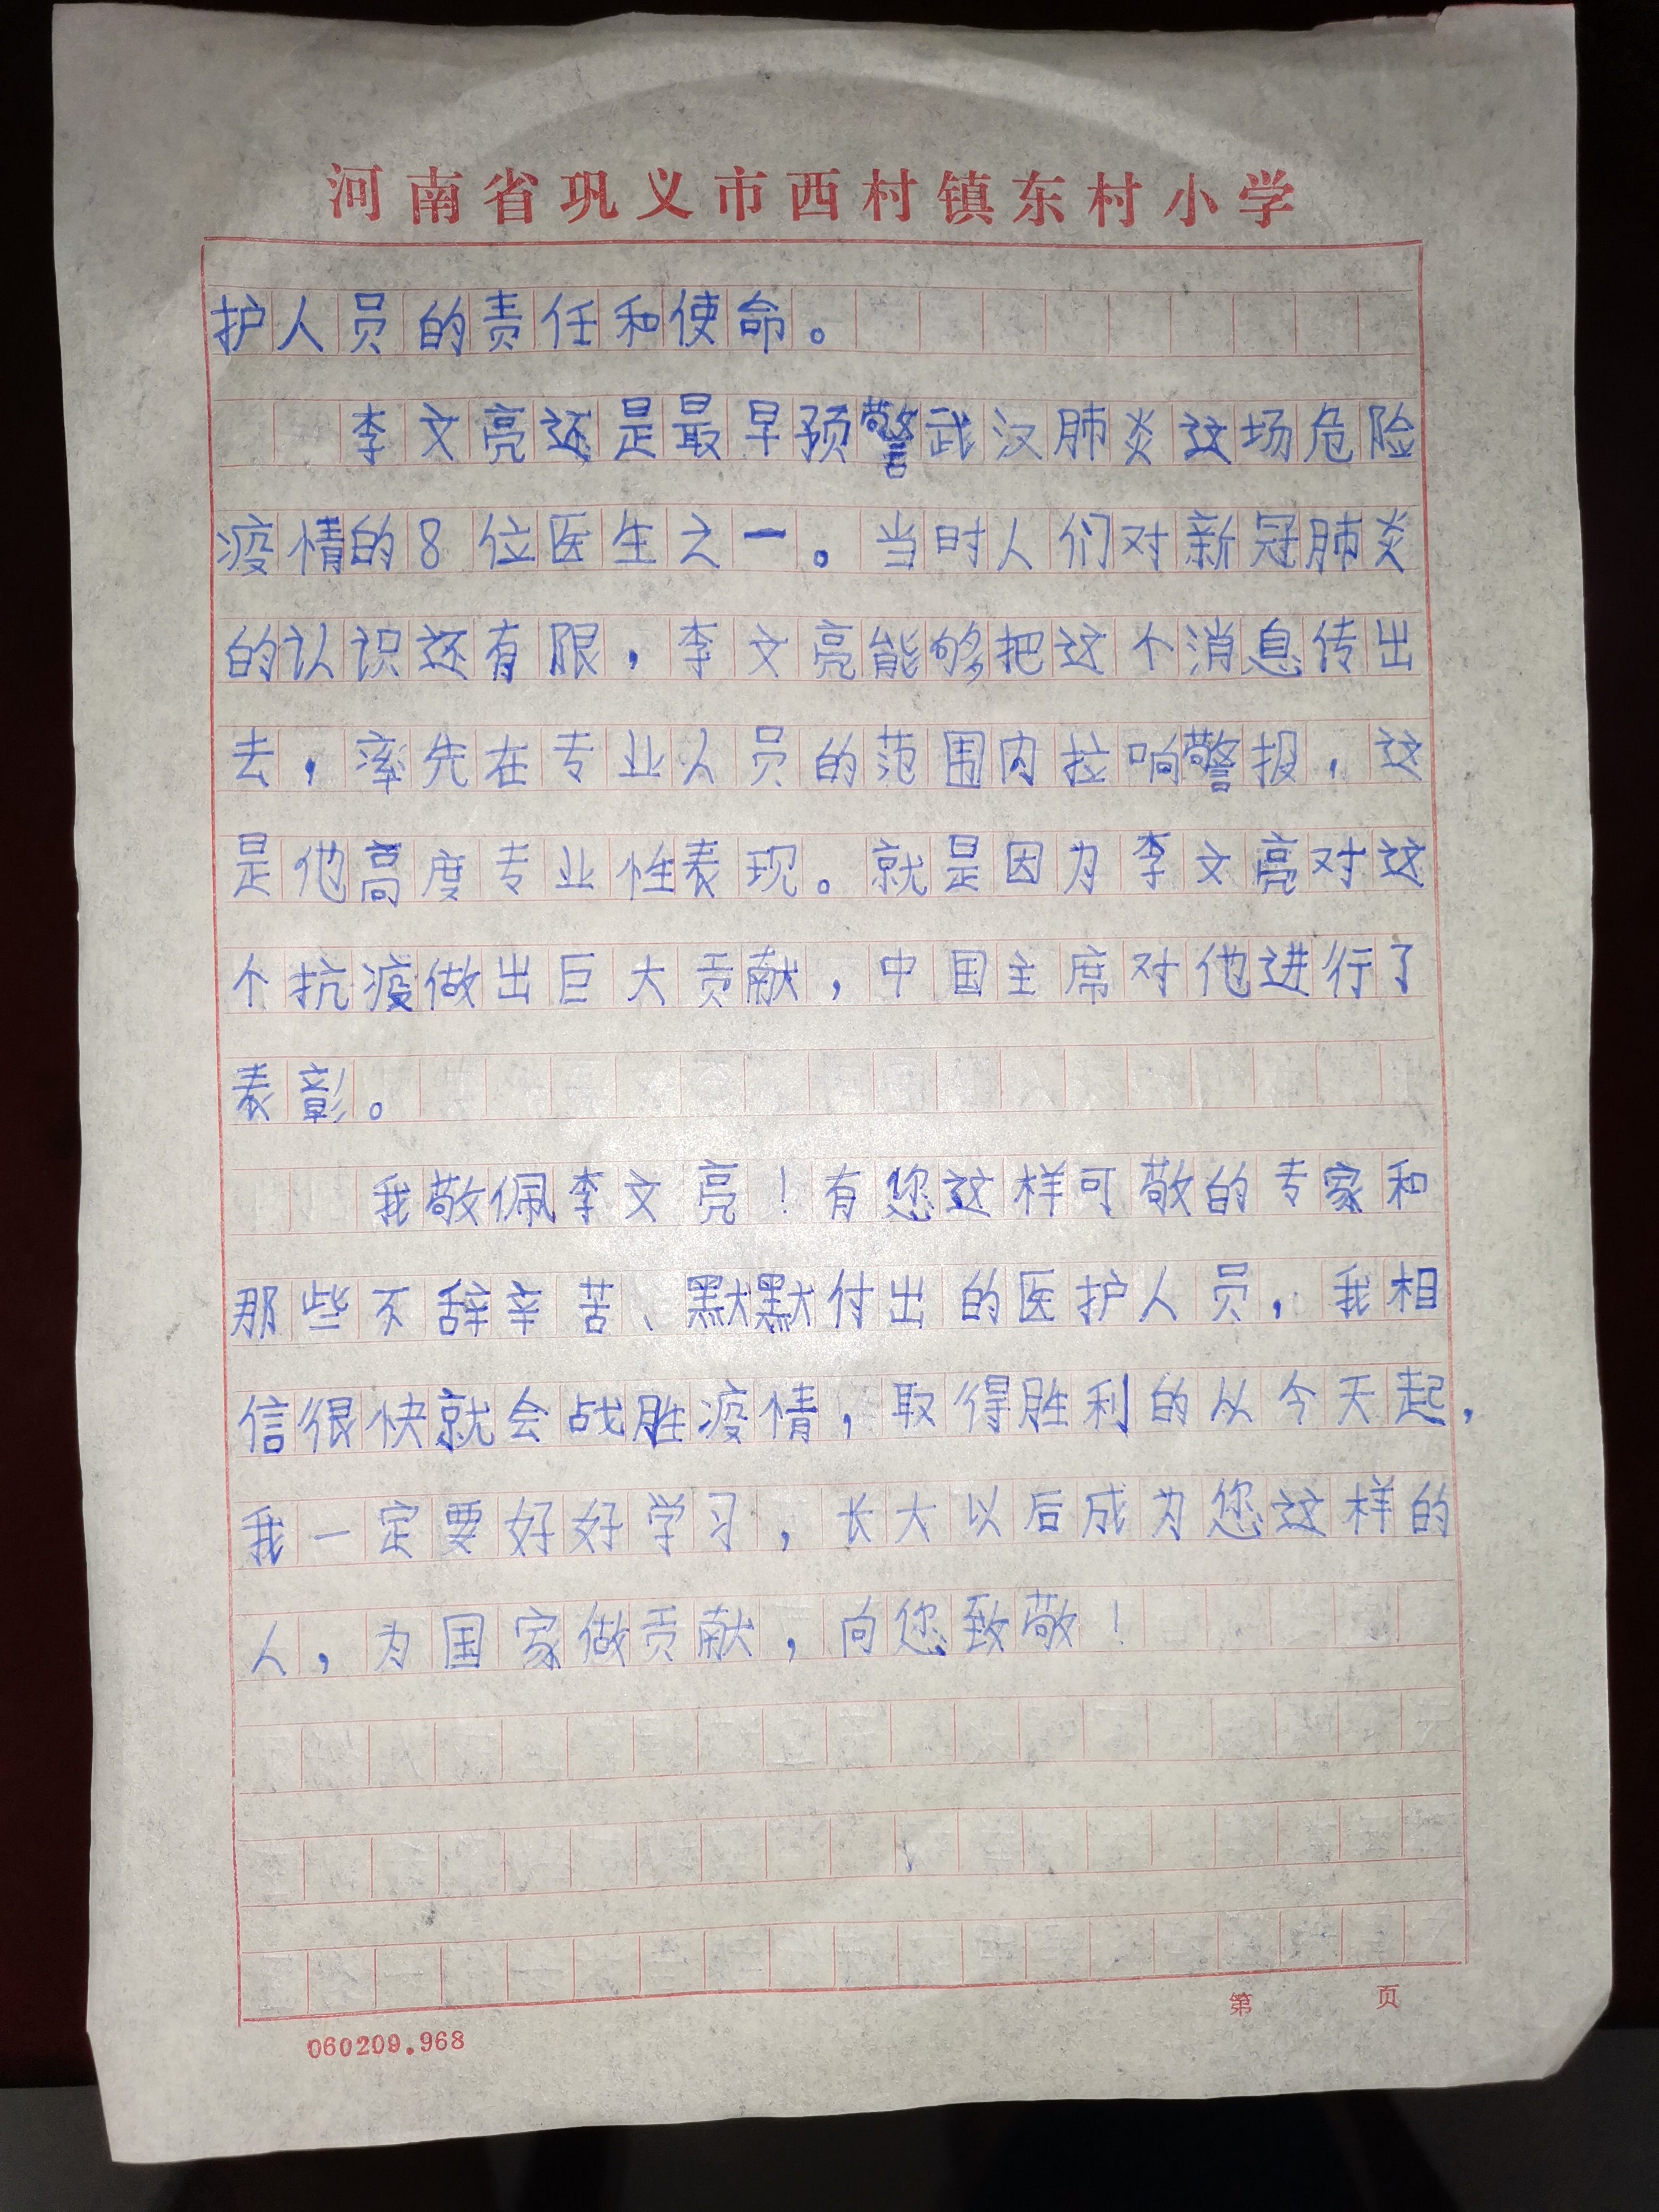 河南省巩义市西村镇东村小学
护人员的责任和使命。
李文亮还是最早预警武汉肺炎这场危险
疫情的8位医生之一。当时人们对新冠肺炎
的认识还有限，李文亮能够把这个消息传出
去，率先在专业人员的范围内拉响警报，这
是他高度专业性表现。就是因为李文亮对这
个抗疫做出巨大贡献，中国主席对他进行了
表彰。
我敬佩李文亮！有您这样可敬的专家和
那些不辞辛苦、默默付出的医护人员，我相
信很快就会战胜疫情，取得胜利的从今天起，
我一定要好好学习，长大以后成为您这样的
人，为国家做贡献，向您致敬！
第 页
060209.968